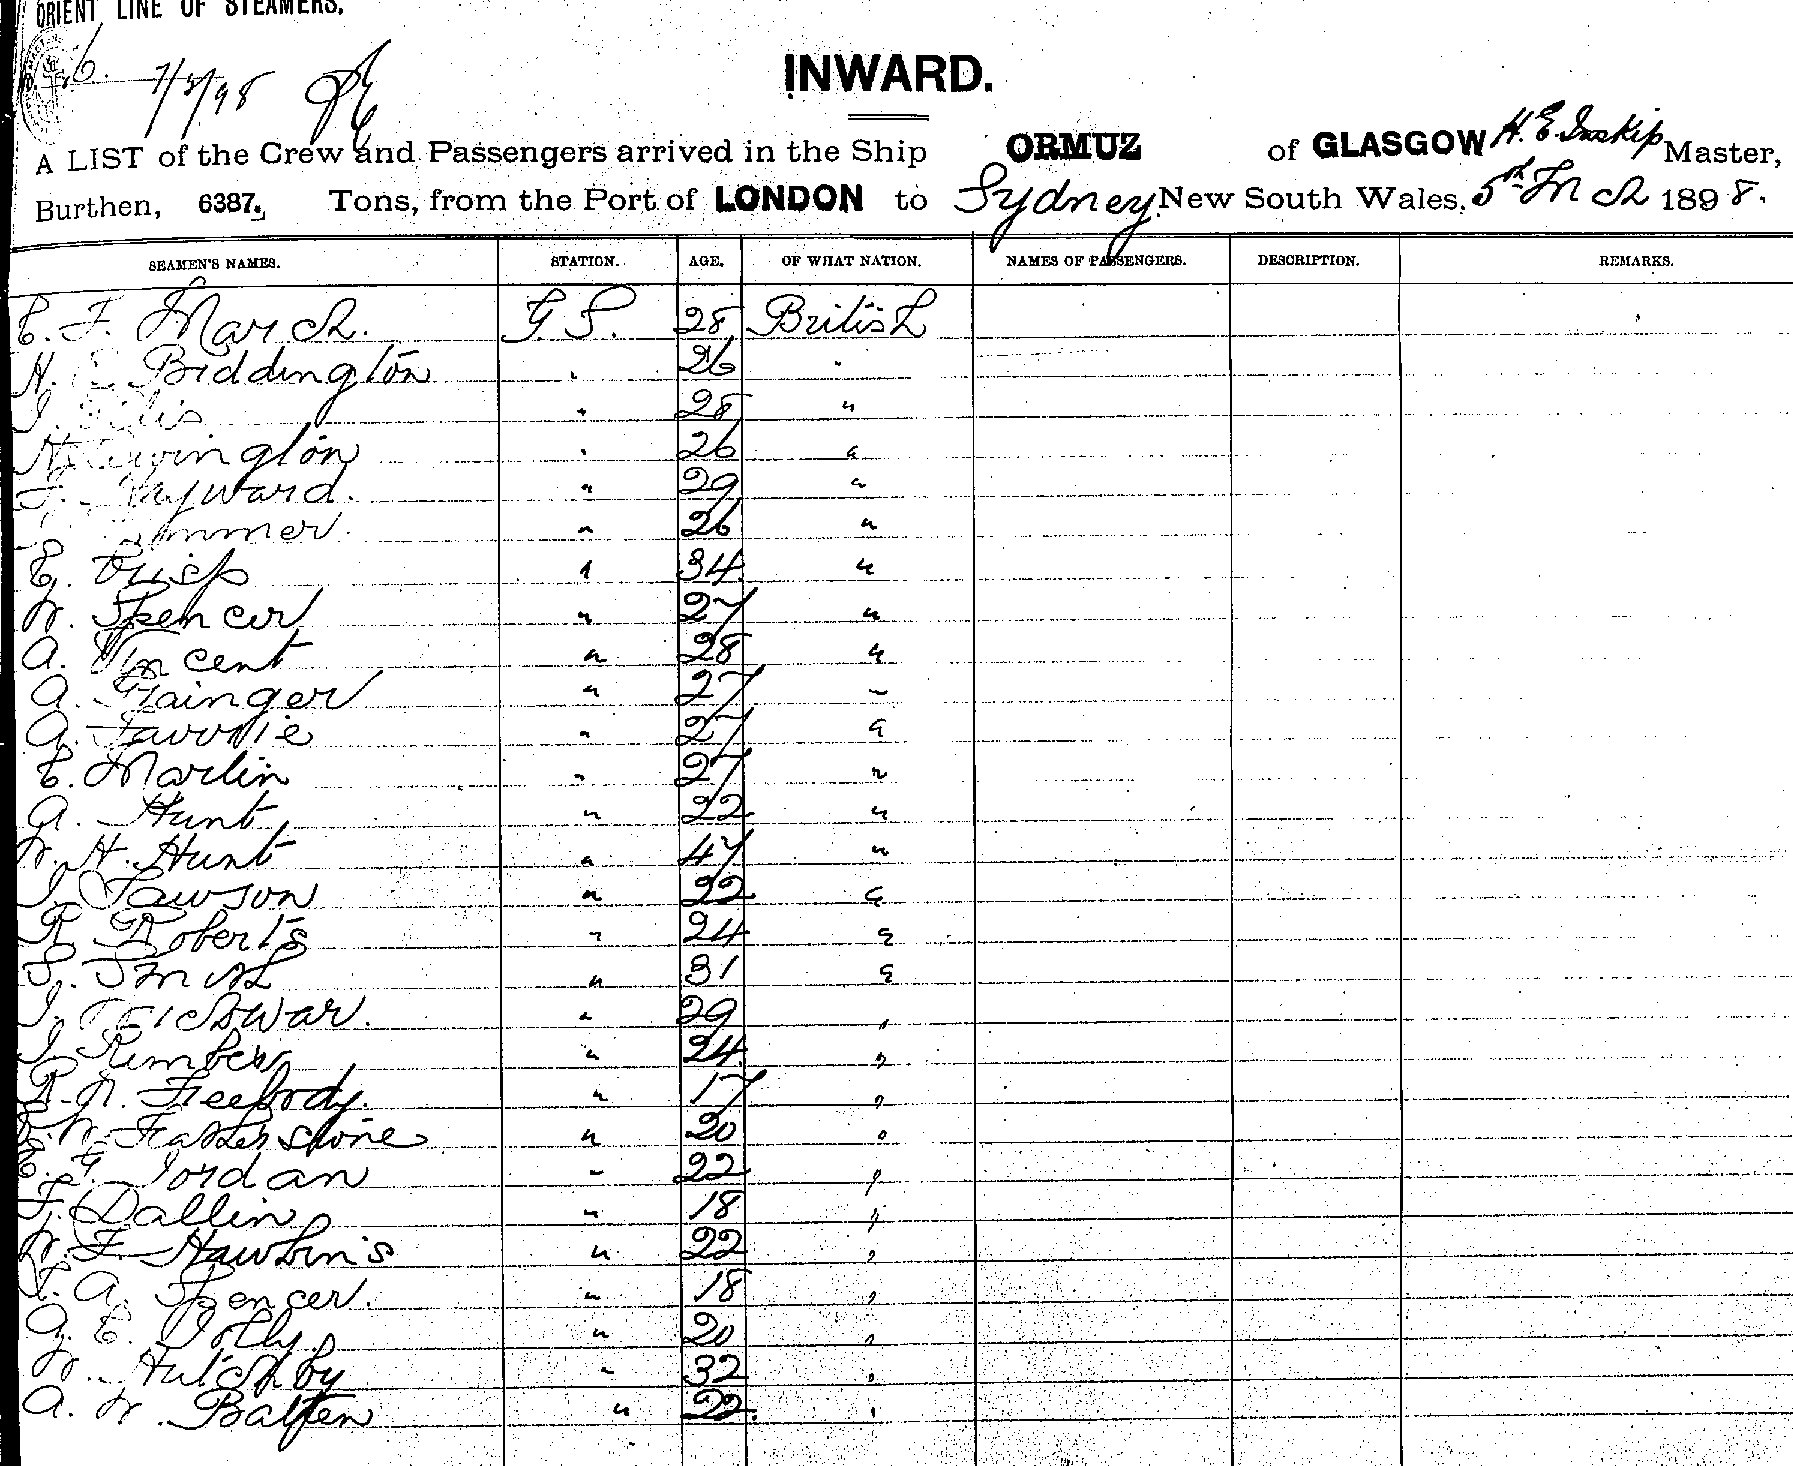 ORIENT LINE OF STEAMERS.
6.
INWARD.
A LIST of the Crew and Passengers arrived in the Ship ORMUZ of GLASGOW H. E. Inskip Master,
Burthen, 6387. Tons, from the Port of LONDON to Sydney New South Wales, 5th Mch 1898.
SEAMEN'S NAMES. STATION. AGE. OF WHAT NATION. NAMES OF PASSENGERS. DESCRIPTION. REMARKS.
E. F. March. G. S. 28 British
H. Biddington 26 "
28 "
26 "
Hayward. " 29 "
" 26 "
E. Crisp " 34 "
W. Spencer " 27 "
A. Vincent " 28 "
A. Grainger " 27 "
A. " 27 "
E. Martin " 27 "
A. Hunt " 22 "
W. H. Hunt " 47 "
J. Lawson " 22 "
R. Roberts " 24 "
S. Smith " 31 "
J. " 29 "
J. Rumbex " 24 "
R. N. Freebody. " 17 "
W. Featherstone " 20 "
E. G. Jordan " 22 "
F. Dallin " 18 "
W. F. Hawkins " 22 "
F. A. Spencer. " 18 "
G. E. Jolly " 20 "
W. Hutchby " 32 "
A. W. Batten " 22 "